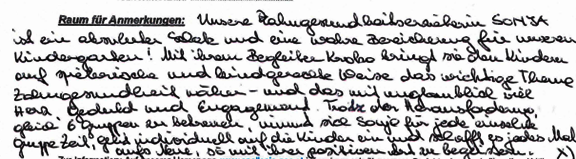 Raum für Anmerkungen: Unsere Zahngesundheitserzieherin SONJA
ist ein absoluter Schatz und eine wahre Bereicherung für unseren
Kindergarten! Mit ihrem Begleiter Kroko bringt sie den Kindern
auf spielerische und kindgerechte Weise das wichtige Thema
Zahngesundheit näher - und das mit unglaublich viel
Herz, Geduld und Engagement. Trotz der Herausforderung,
gleich 6 Gruppen zu betreuen, nimmt sich Sonja für jede einzelne
Gruppe Zeit, geht individuell auf die Kinder ein und schafft es jedes Mal
aufs Neue, sie mit ihrer positiven Art zu begeistern. X)